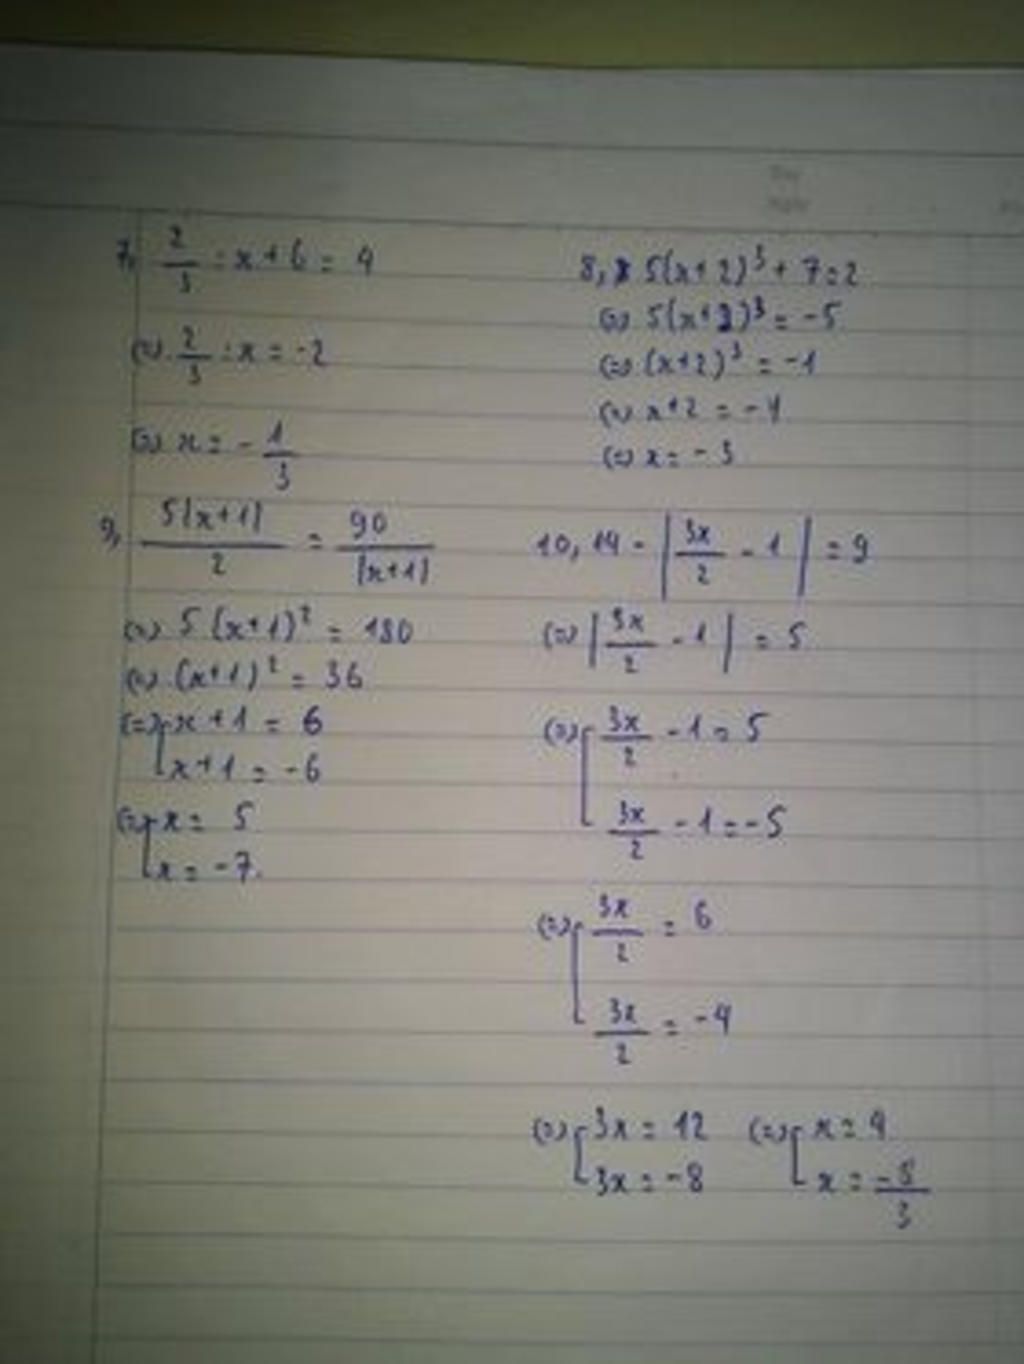 7, 2/3 : x + 6 = 4
(=) 2/3 : x = -2
(=) x = -1/3
8, 5(x+2)³ + 7 = 2
(=) 5(x+2)³ = -5
(=) (x+2)³ = -1
(=) x+2 = -1
(=) x = -3
9, 5(x+1)/2 = 90/(x+1)
(=) 5(x+1)² = 180
(=) (x+1)² = 36
(=) [ x+1 = 6
x+1 = -6
(=) [ x = 5
x = -7.
10, 14 - |3x/2 - 1| = 9
(=) |3x/2 - 1| = 5
(=) [ 3x/2 - 1 = 5
3x/2 - 1 = -5
(=) [ 3x/2 = 6
3x/2 = -4
(=) [ 3x = 12 (=) [ x = 4
3x = -8 x = -8/3